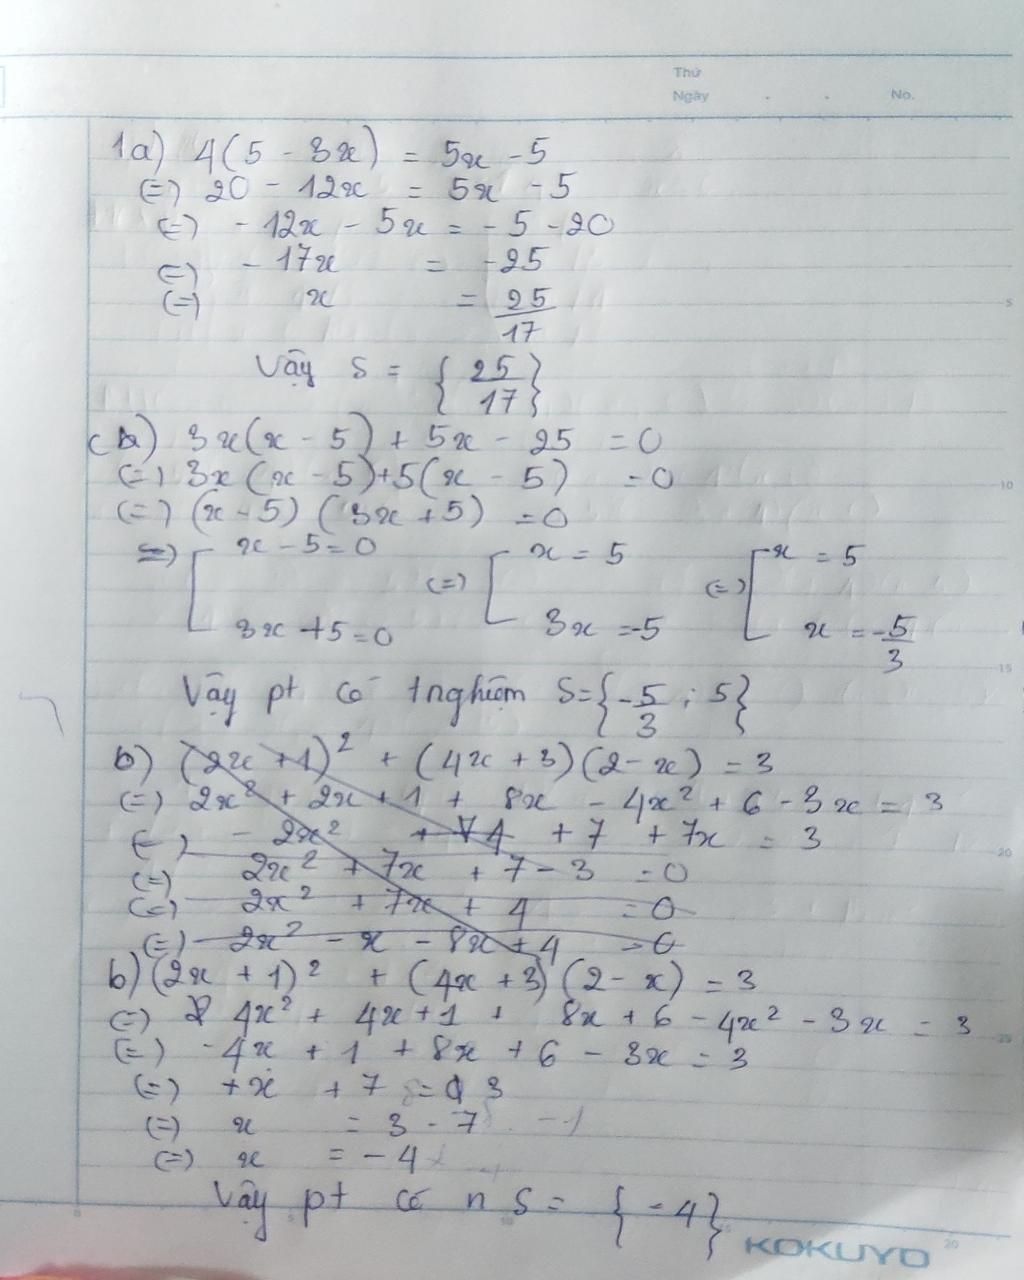 Thứ
Ngày . . No.
1a) 4(5 - 3x) = 5x - 5
(=) 20 - 12x = 5x - 5
(=) - 12x - 5x = - 5 - 20
(=) - 17x = - 25
(=) x = 25/17
Vậy S = { 25/17 }
c) 3x(x - 5) + 5x - 25 = 0
(=) 3x(x - 5) + 5(x - 5) = 0
(=) (x - 5) (3x + 5) = 0
(=) [ x - 5 = 0 (=) [ x = 5 (=) [ x = 5
3x + 5 = 0 3x = -5 x = -5/3
Vậy pt có tnghiệm S = { -5/3 ; 5 }
b) (2x + 1)² + (4x + 3)(2 - x) = 3
(=) 2x² + 2x + 1 + 8x - 4x² + 6 - 3x = 3
(=) - 2x² + 7 + 7x = 3
(=) 2x² + 7x + 7 - 3 = 0
(=) 2x² + 7x + 4 = 0
(=) 2x² - x - 8x + 4 = 0
b) (2x + 1)² + (4x + 3) (2 - x) = 3
(=) 4x² + 4x + 1 + 8x + 6 - 4x² - 3x = 3
(=) - 4x + 1 + 8x + 6 - 3x = 3
(=) + x + 7 = 3
(=) x = 3 - 7
(=) x = - 4
Vậy pt có n S = { - 4 }
KOKUYO